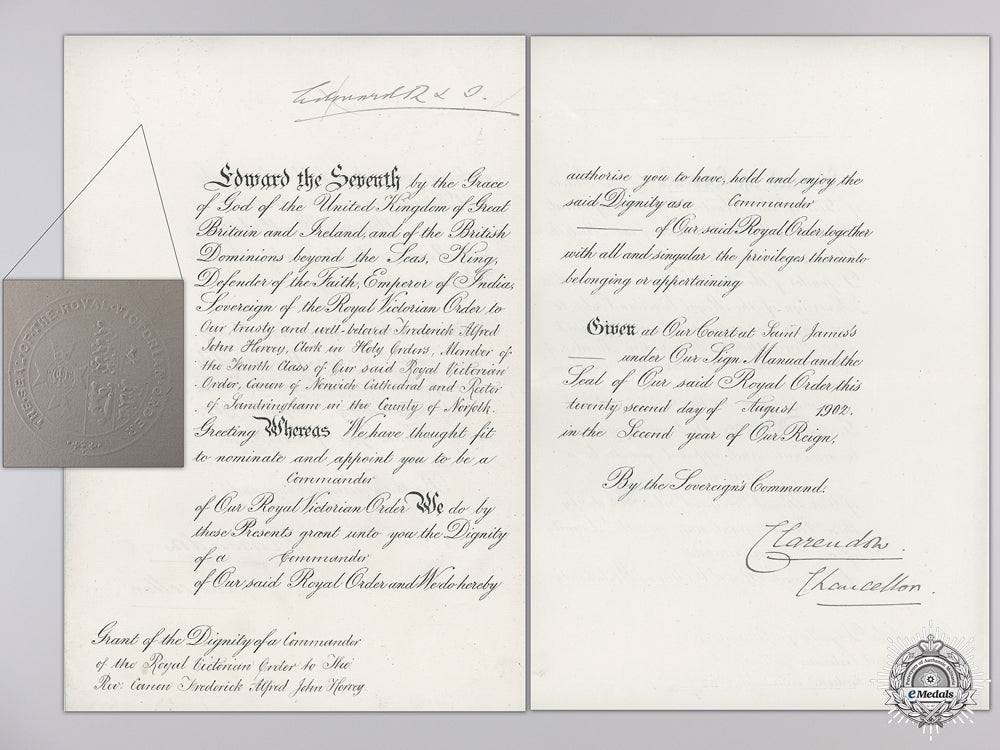 Edward R & I.
Edward the Seventh by the Grace
of God of the United Kingdom of Great
Britain and Ireland, and of the British
Dominions beyond the Seas, King,
Defender of the Faith, Emperor of India,
Sovereign of the Royal Victorian Order to
Our trusty and well-beloved Frederick Alfred
John Hervey, Clerk in Holy Orders, Member of
the Fourth Class of Our said Royal Victorian
Order, Canon of Norwich Cathedral and Rector
of Sandringham in the County of Norfolk.
Greeting Whereas We have thought fit
to nominate and appoint you to be a
Commander
of Our Royal Victorian Order We do by
these Presents grant unto you the Dignity
of a Commander
of Our said Royal Order and We do hereby
Grant of the Dignity of a Commander
of the Royal Victorian Order to The
Rev: Canon Frederick Alfred John Hervey.
THE SEAL OF THE ROYAL VICTORIAN ORDER
authorise you to have, hold and enjoy the
said Dignity as a Commander
of Our said Royal Order, together
with all and singular the privileges thereunto
belonging or appertaining
Given at Our Court at Saint James's
under Our Sign Manual and the
Seal of Our said Royal Order this
twenty second day of August 1902.
in the Second year of Our Reign,
By the Sovereign's Command.
Clarendon.
Chancellor.
eMedals